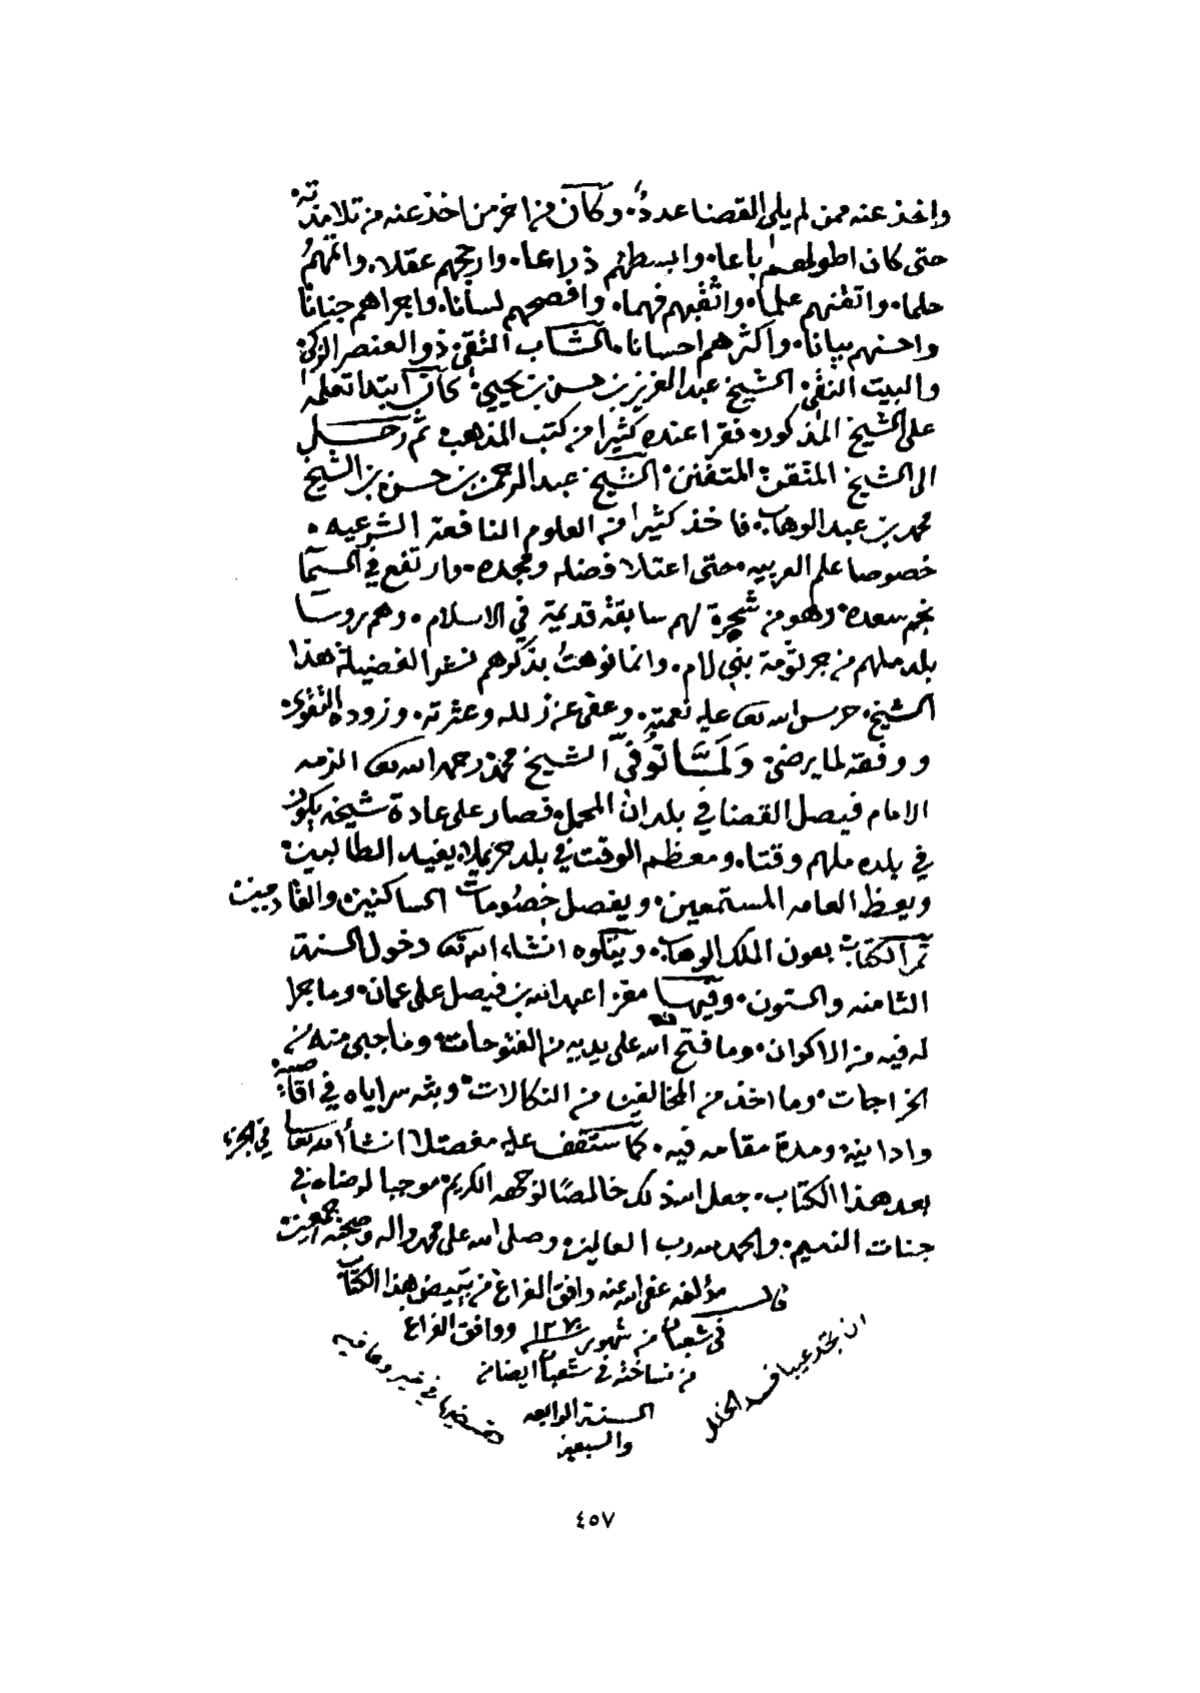 واخذ عنه ممن لم يلى القضا عدد، وكان من اخر من اخذ عنه من تلامذته
حتى كان اطولهم باعا، وابسطهم ذراعا، وارجحهم عقلا، واتمهم
حلما، واتقنهم علما، واثقبهم فهما، وافصحهم لسانا، واجراهم جنانا
واحسنهم بيانا، واكثرهم احسانا، الشاب التقي، ذو العنصر الزكي
والبيت النقي، الشيخ عبد العزيز بن حسن بن يحيى، كان ابتدا تعلمه
على الشيخ المذكور، فقرا عنده كثيرا من كتب المذهب، ثم رحل
الى الشيخ المتقن، المتفنن، الشيخ عبد الرحمن بن حسن بن الشيخ
محمد بن عبد الوهاب، فاخذ كثيرا من العلوم النافعة الشرعيه،
خصوصا علم العربيه، حتى اعتلا فضله ومجده، وارتفع في السما
نجم سعده، وهو من شجرة لهم سابقة قديمة في الاسلام، وهم روسا
بلد ملهم من جرثومة بني لام، وانما نوهت بذكرهم نشرا لفضيلة هذا
الشيخ، حرس الله تعالى عليه نعمته، وعفى عن زلله وعثرته، وزوده التقوى
ووفقه لما يرضى، ولما توفي الشيخ محمد رحمه الله تعالى الزمه
الامام فيصل القضا في بلدان المحمل فصار على عادة شيخه يكون
في بلده ملهم وقتا، ومعظم الوقت في بلد حريملا، يفيد الطالبين
ويوعظ العامه المستمعين، ويفصل خصومات الساكنين والقادمين
تم الكتاب بعون الملك الوهاب، ويتلوه انشاء الله تعالى دخول السنة
الثامنه والستون، وفيها مغزا عبد الله بن فيصل على عمان، وما جرا
له فيه من الاكوان، وما فتح الله على يديه من الفتوحات، وما جبى منه من
الخراجات، وما اخذ من المخالفين من النكالات، وبث سراياه في اقاصيه
وادانيه، ومدة مقامه فيه، كما ستقف عليه مفصلا انشا الله تعالى في الجزء
بعد هذا الكتاب، جعل الله ذلك خالصا لوجهه الكريم، موجبا لرضاه في
جنات النعيم، والحمد لله رب العالمين، وصلى الله على محمد واله وصحبه اجمعين
قال مؤلفه عفى الله عنه وافق الفراغ من تبييض هذا الكتاب
في شعبان من شهور ١٢٧٠ ووافق الفراغ
من نساخته في شعبان ايضا من
السنة الرابعه
والسبعين
ان تجد عيبا فسد الخلل
في خير وعافيه
٤٥٧